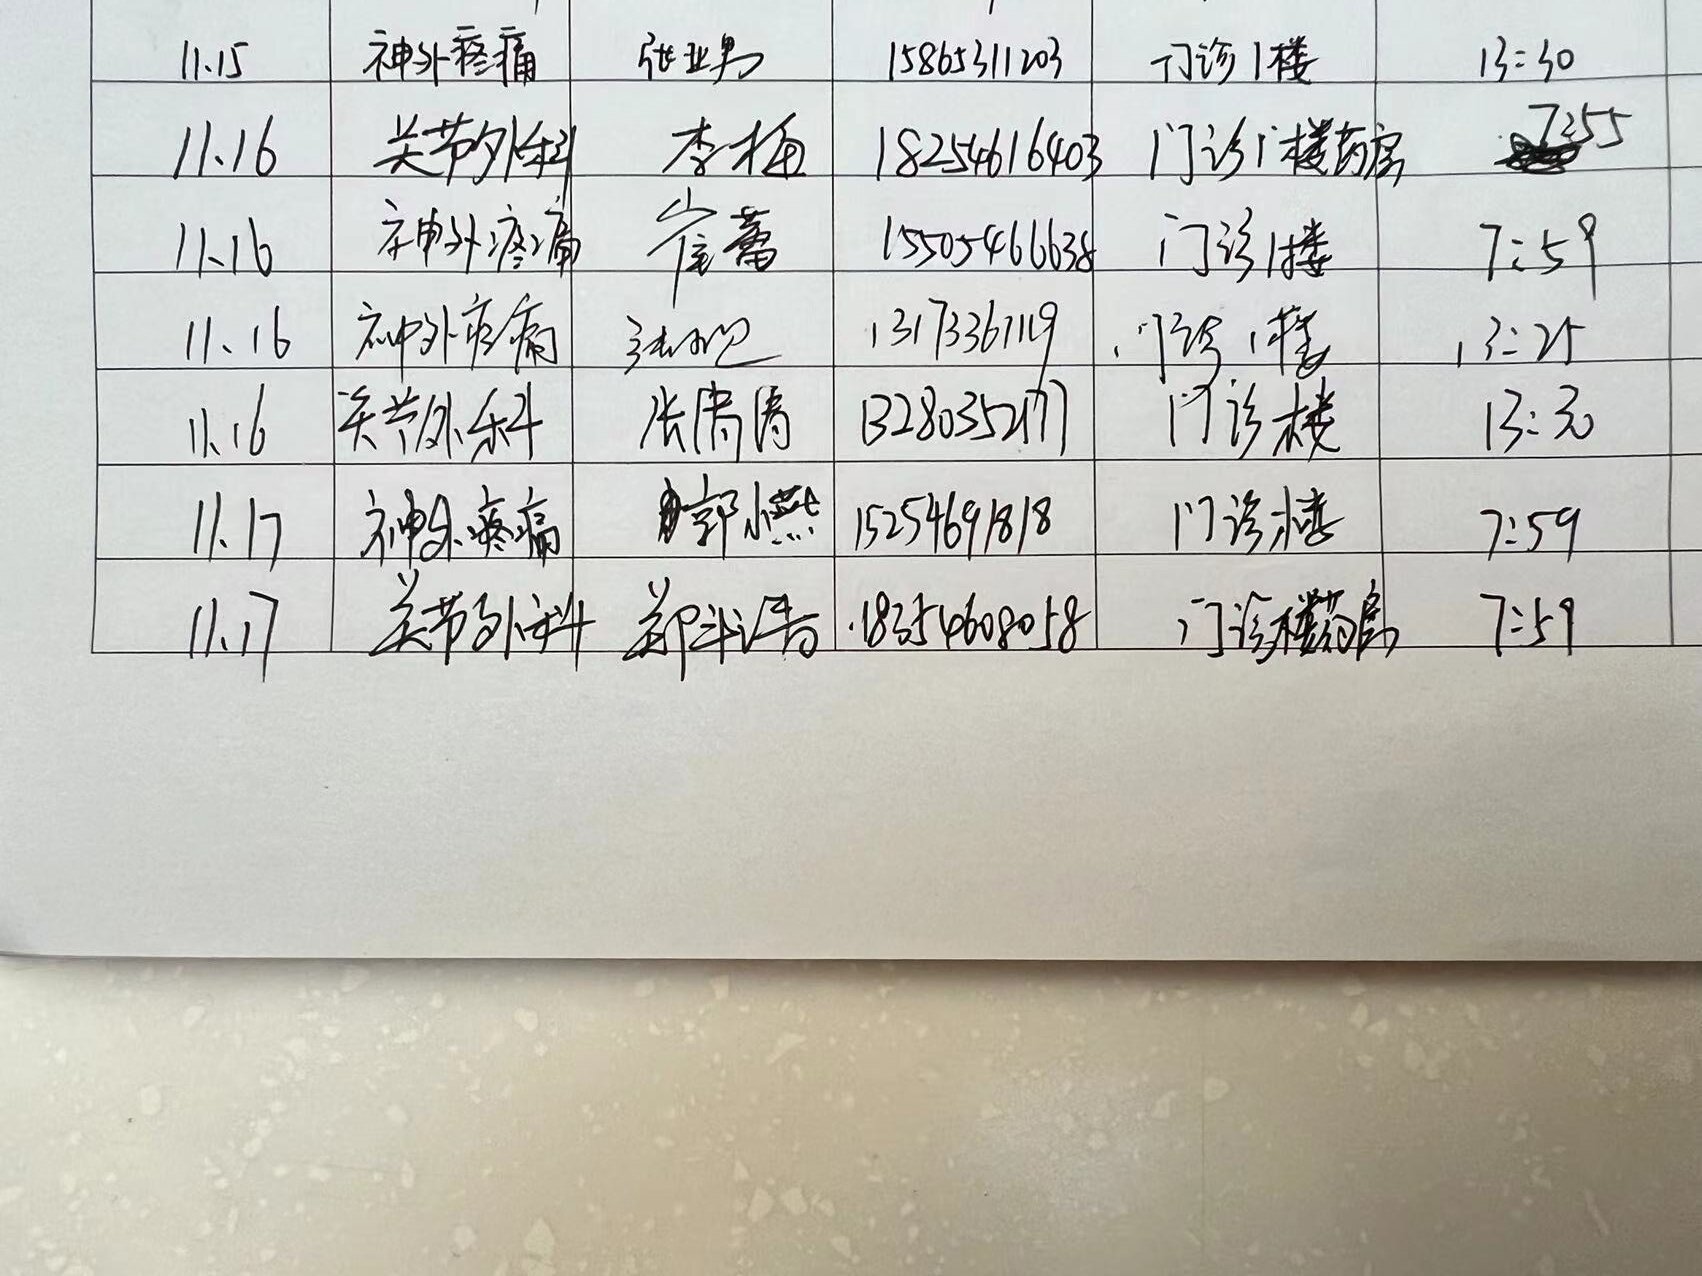 11.15 神外疼痛 张业男 15865311203 门诊1楼 13:30
11.16 关节外科 李梅 18254616403 门诊1楼药房 7:55
11.16 神外疼痛 崔蕾 15505466638 门诊1楼 7:59
11.16 神外疼痛 13173367119 门诊1楼 13:25
11.16 关节外科 张涛涛 13280352177 门诊楼 13:30
11.17 神外疼痛 郭小燕 15254691818 门诊楼 7:59
11.17 关节外科 18354608058 门诊楼药房 7:59